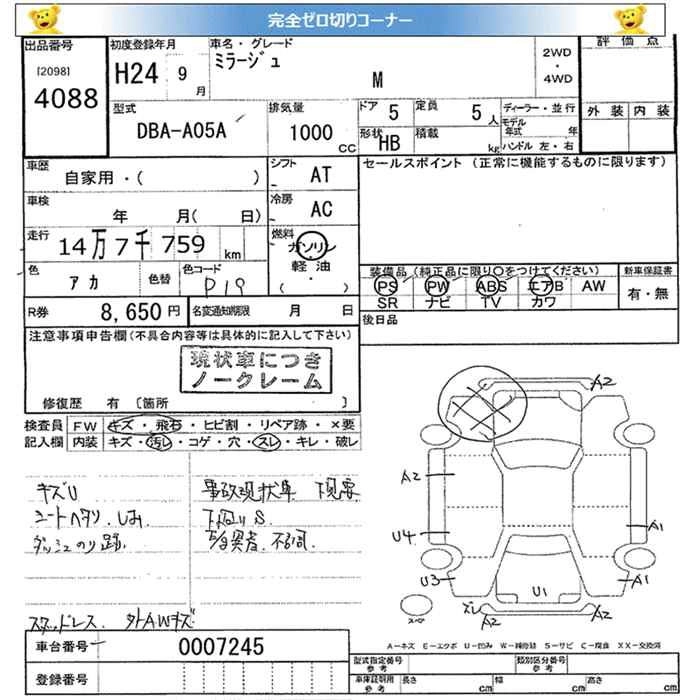 完全ゼロ切りコーナー
出品番号 初度登録年月 車名・グレード 評価点
[2098] H24 9月 ミラージュ 2WD・4WD
4088 M
型式 排気量 ドア 5 定員 5人 ディーラー・並行 外装 内装
DBA-A05A 1000cc 形状 HB 積載 kg モデル年式 年
ハンドル 左・右
車歴 自家用・( ) シフト AT セールスポイント (正常に機能するものに限ります)
車検 年 月( 日) 冷房 AC
走行 14万7千759km 燃料 ガソリン・軽油・( )
色 アカ 色替 色コード P19 装備品 (純正品に限り〇をつけてください) 新車保証書
PS PW ABS エアB AW 有・無
SR ナビ TV カワ
R券 8,650円 名変通知期限 月 日 後日品
注意事項申告欄(不具合内容等は具体的に記入して下さい)
現状車につき
ノークレーム
修復歴 有 [箇所 ]
検査員 FW キズ・飛石・ヒビ割・リペア跡・×要
記入欄 内装 キズ・汚レ・コゲ・穴・スレ・キレ・破レ
キズU 事故現状車 下見要
下回りS
スタッドレス 外AWキズ
A2
A2
U4 A1
U3 U1 A1
スペ ズレ A2 A2
A-キズ E-エクボ U-凹み W-補修跡 S-サビ C-腐食 XX-交換済
車台番号 0007245
登録番号
型式指定番号 参考 類別区分番号 参考
車庫証明用 参考 長さ cm 幅 cm 高さ cm